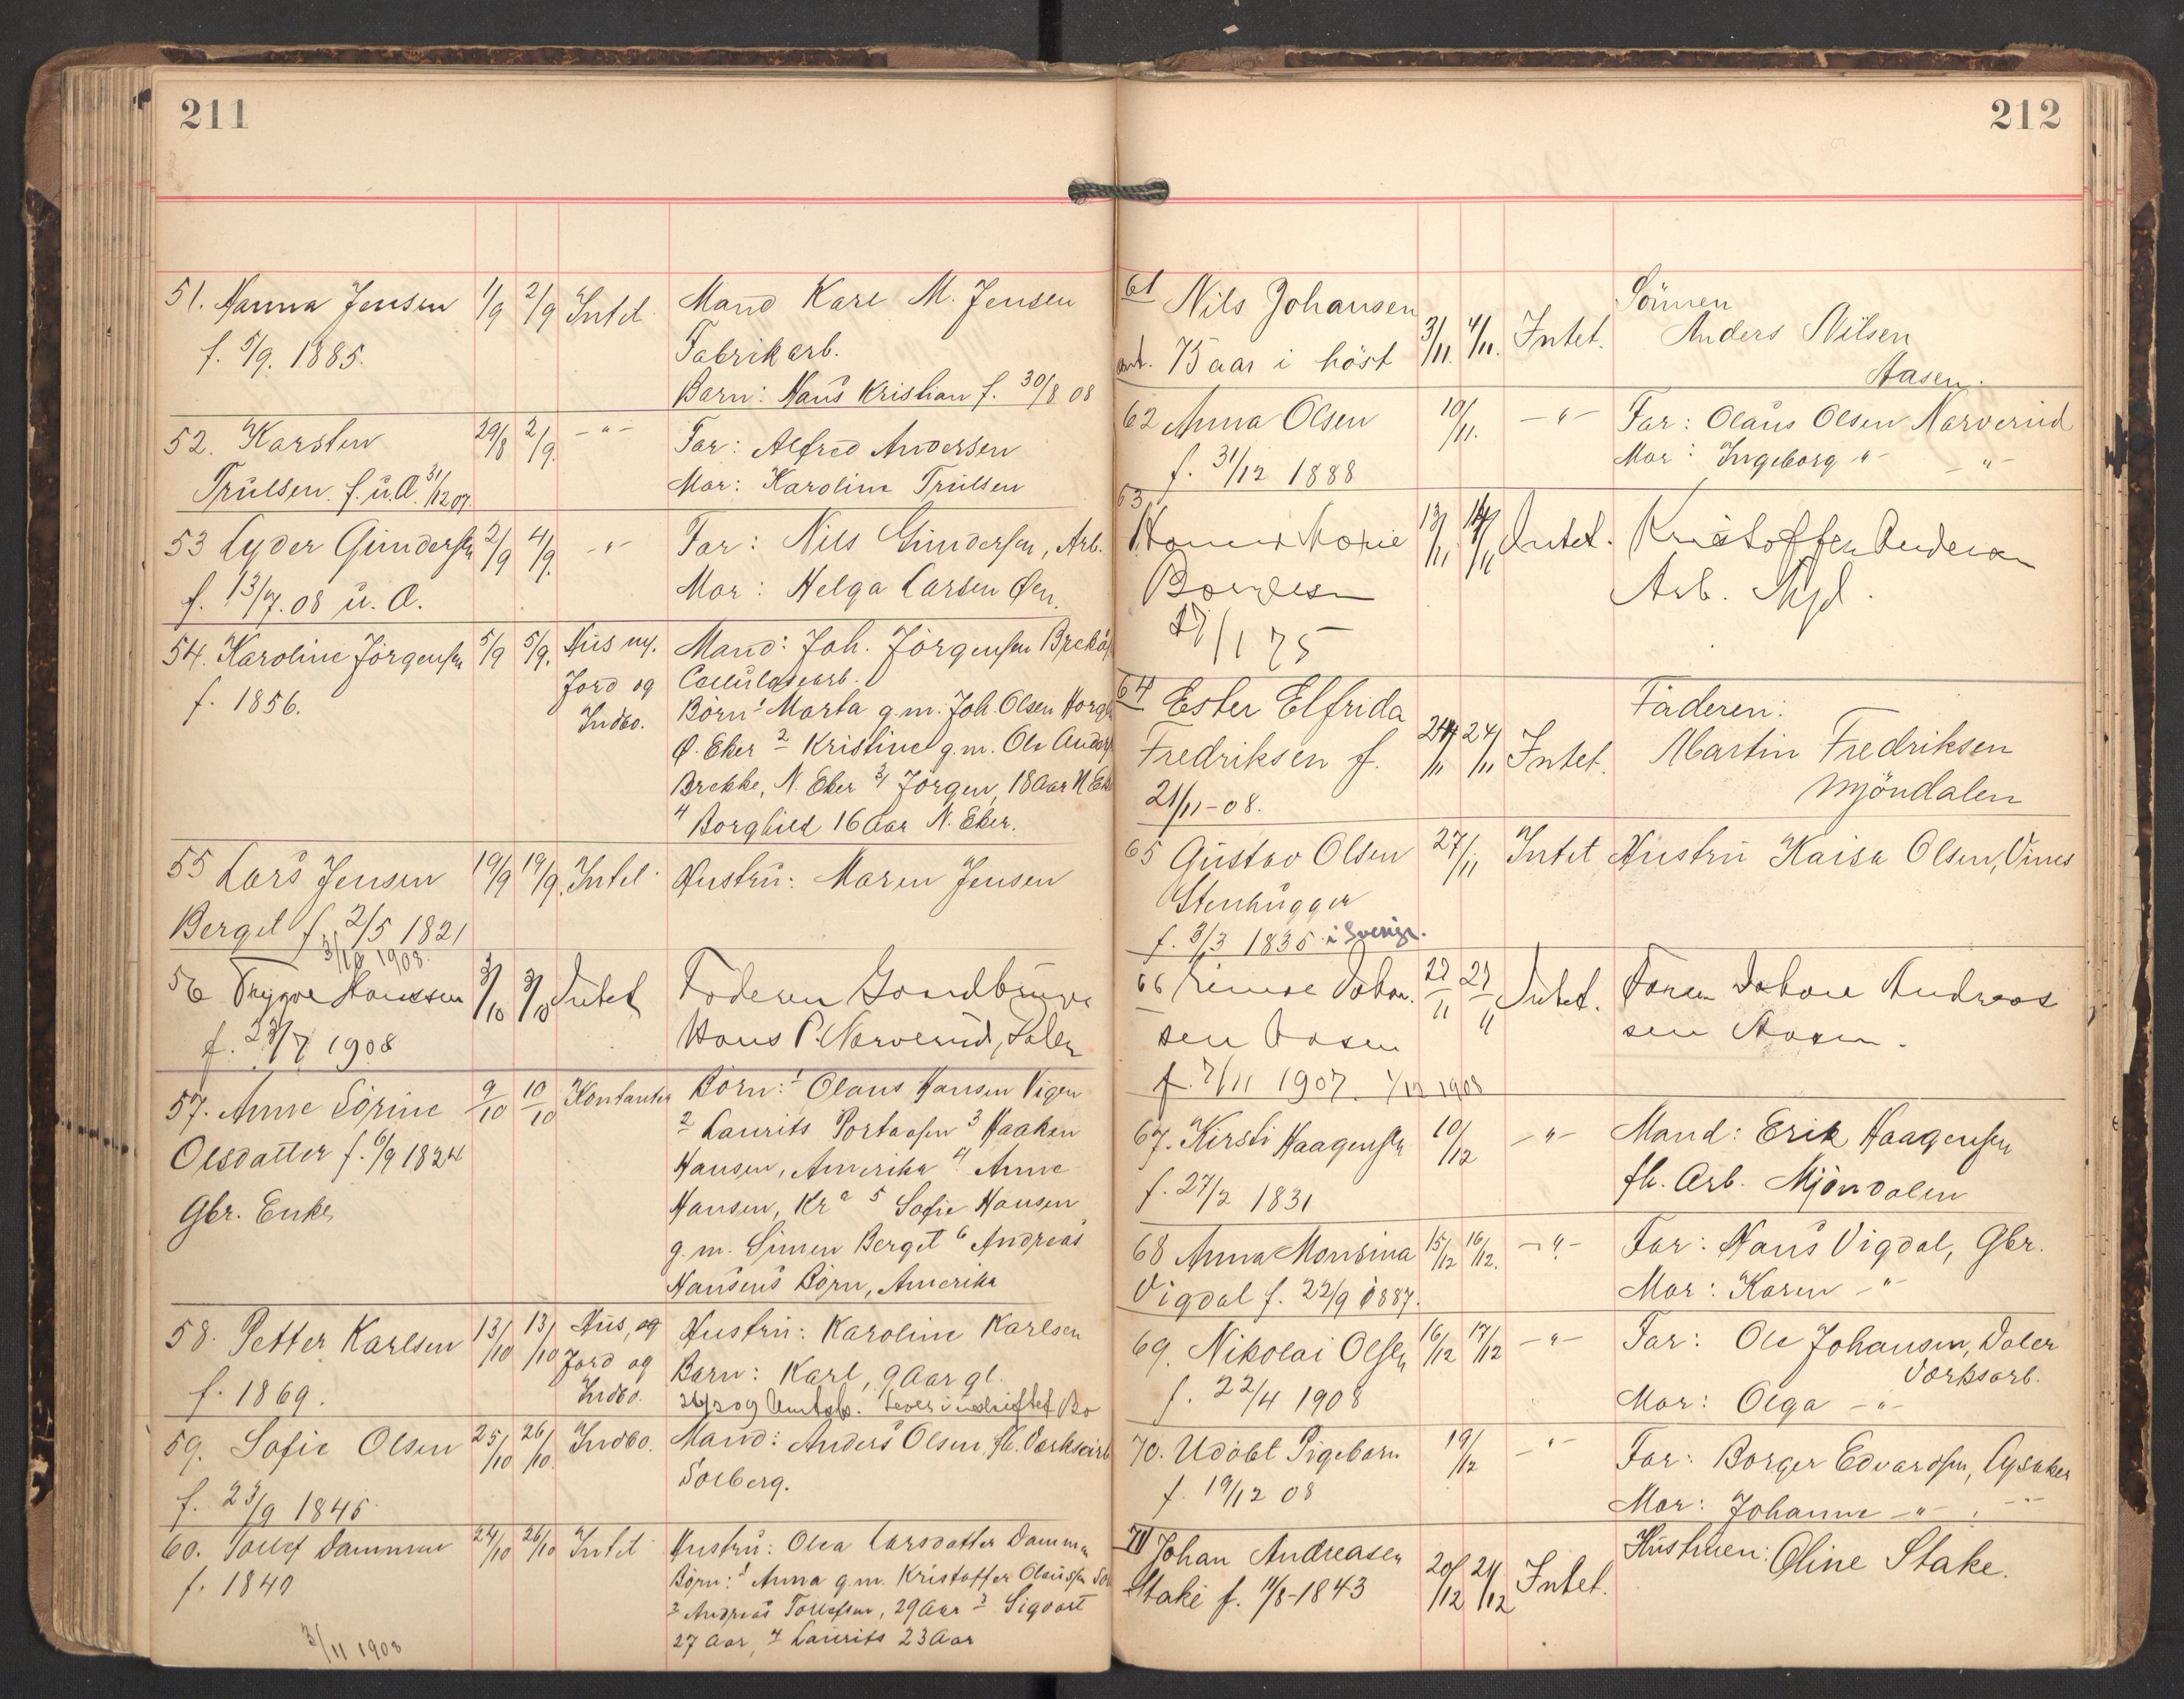 211
51. Hanna Jensen 1/9 2/9 Intet Mand Karl M. Jensen
f. 5/9. 1885. Fabrikarb.
Barn: Hans Kristian f. 30/8 08
52. Karsten 29/8 2/9. -"- Far: Alfred Andersen
Trulsen. f. u. Æ. 31/12 07. Mor: Karoline Trulsen
53 Lyder Gundersen 2/9 4/9. -"- Far: Nils Gundersen, Arb.
f. 13/7. 08 u. Æ. Mor: Helga Larsen
54. Karoline Jörgensen 5/9 5/9. Hus m. Mand: Joh. Jörgensen
f. 1856. Jord og Cellulosearb.
Indbo. Börn: 1 Marta g.m. Joh. Olsen
Ø. Eker 2 Kristine g.m. Ole
Brekke, N. Eker 3 Jörgen, 18 Aar
4 Borghild 16 Aar N. Eker.
55 Lars Jensen 19/9 19/9. Intet Hustru: Maren Jensen
Berget f. 2/5 1821
3/10 1908.
56 Trygve Hanssen 3/10 3/10 Intet Faderen Gaardbruger
f. 23/7 1908 Hans P. Narverud,
57. Anne Sörine 9/10 10/10 Kontanter Börn: 1 Olaus Hansen Vigen
Olsdatter f. 6/9 1824 2 Laurits 3 Haaken
Gbr. Enke Hansen, Amerika 4 Anne
Hansen, Kr a 5 Sofie Hansen
g.m. Simen Berget 6 Andreas
Hansens Börn, Amerika
58. Petter Karlsen 13/10 13/10 Hus, og Hustru: Karoline Karlsen
f. 1869. Jord og Barn: Karl, 9 Aar gl.
Indbo. i uskiftet Bo
59. Sofie Olsen 25/10 26/10. Indbo. Mand: Anders Olsen,
f. 23/9 1845 Solberg.
60. Tollef Dammen 24/10 26/10 Intet Hustru: Olea Larsdatter Dammen
f. 1840 Börn: 1 Anna g.m. Kristoffer
2 Andreas Tollefsen, 29 Aar 3 Sigvart
27 Aar, 4 Laurits 23 Aar
3/11 1908
212
61 Nils Johansen 3/11. 4/11. Intet. Sönnen
ant. 75 aar i höst Anders Nilsen
Aasen.
62 Anna Olsen 10/11. -"- Far: Olaus Olsen Narverud
f. 31/12 1888 Mor: Ingeborg " -"-
63 Marie 13/11 14/11 Intet. Kristoffer Andersen
27/1 75 Arb. Mjd.
64 Ester Elfrida 24/11 24/11 Intet. Faderen:
Fredriksen f. Martin Fredriksen
21/11-08. Mjöndalen
65 Gustav Olsen 27/11 Intet Hustru Kaisa Olsen, Vines
Stenhugger
f. 3/3 1835 i Sverige.
66 Johan- 27/11 27/11 Intet. Faren Johan Andreas
sen Aasen sen Aasen.
f. 7/11 1907. 1/12 1908
67. Kirsti Haagensen 10/12 -"- Mand: Erik Haagensen
f. 27/2 1831 fh. Arb. Mjöndalen
68 Anna Monsina 15/12 16/12. -"- Far: Hans Vigdal, Gbr.
Vigdal f. 22/9 1887. Mor: Karen -"-
69. Nikolai Olsen 16/12 17/12 -"- Far: Ole Johansen, Daler
f. 22/4 1908 Værksarb.
Mor: Olga -"-
70. Udöbt Pigebarn 19/12 -"- Far: Borger Edvardsen, Lysaker
f. 19/12 08 Mor: Johanne -"- -"-
71 Johan Andreasen 20/12 24/12 Intet. Hustruen: Oline Stake.
Stake f. 11/8-1843